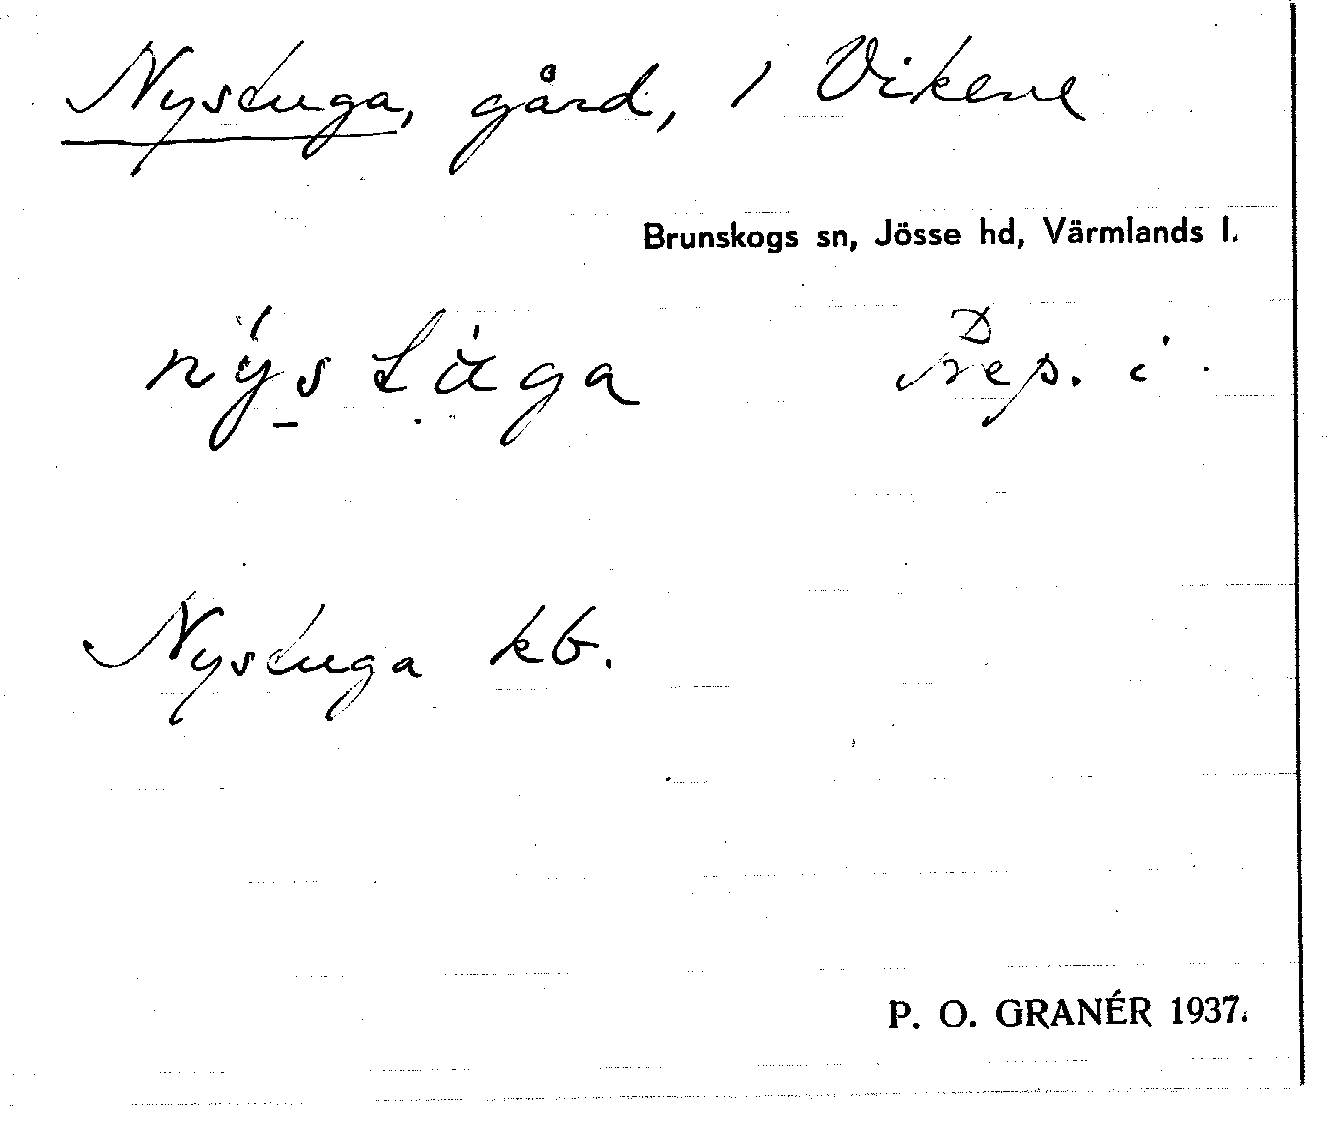 Nysluga, gård, / Vikene
Brunskogs sn, Jösse hd, Värmlands l.
Prep. i
Nysluga kb.
P. O. GRANÉR 1937.